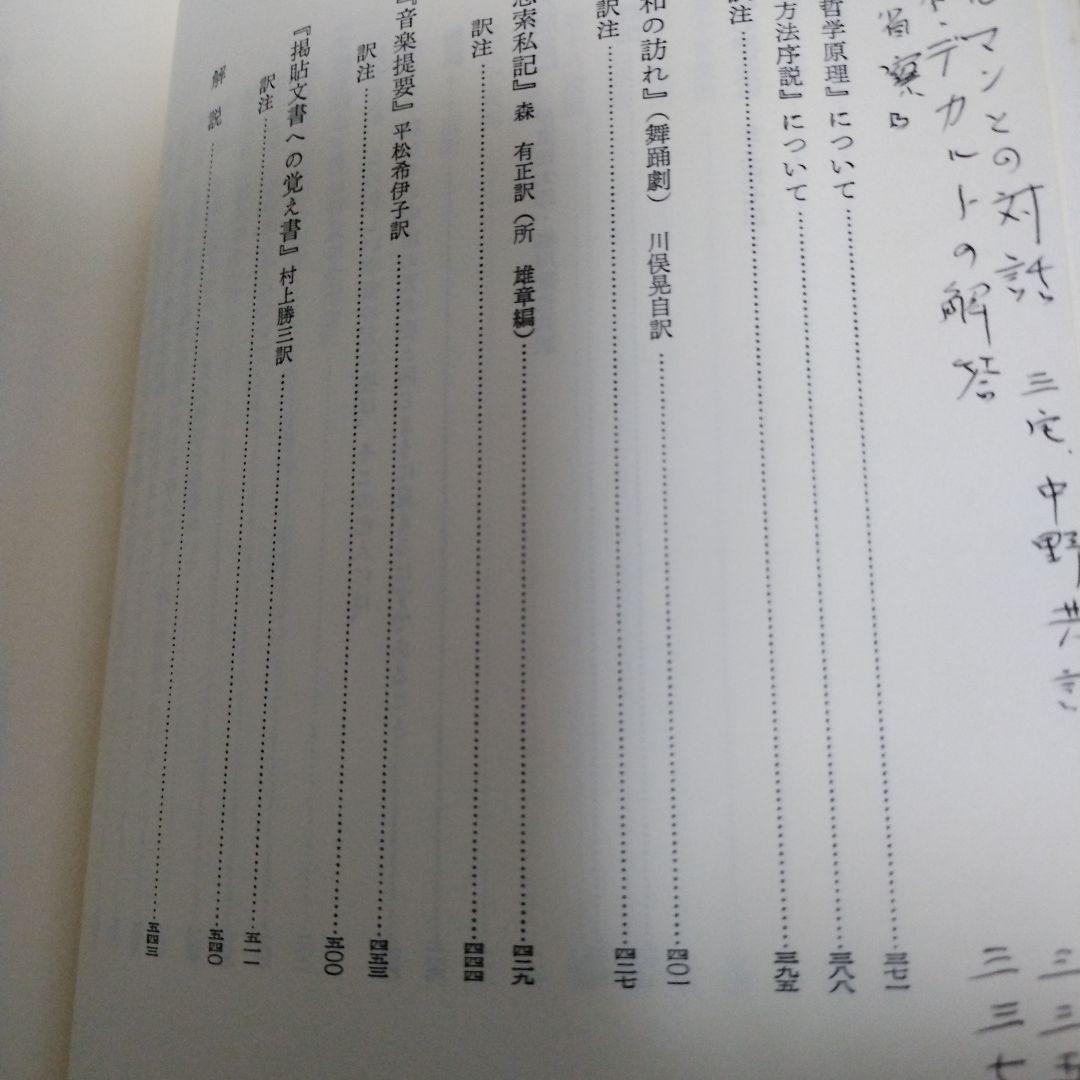 マンとの対話 三宅、中野共 三三五
デカルトの解答 三三七
省察
哲学原理』について 三七一
方法序説』について 三八八
訳注 三九五
和の訪れ』(舞踊劇) 川俣晃自訳 四〇一
訳注 四二七
思索私記』 森 有正訳(所 雄章編) 四二九
訳注 四四四
『音楽提要』 平松希伊子訳 四五三
訳注 五〇〇
『掲貼文書への覚え書』 村上勝三訳 五一一
訳注 五四〇
解説 五四三